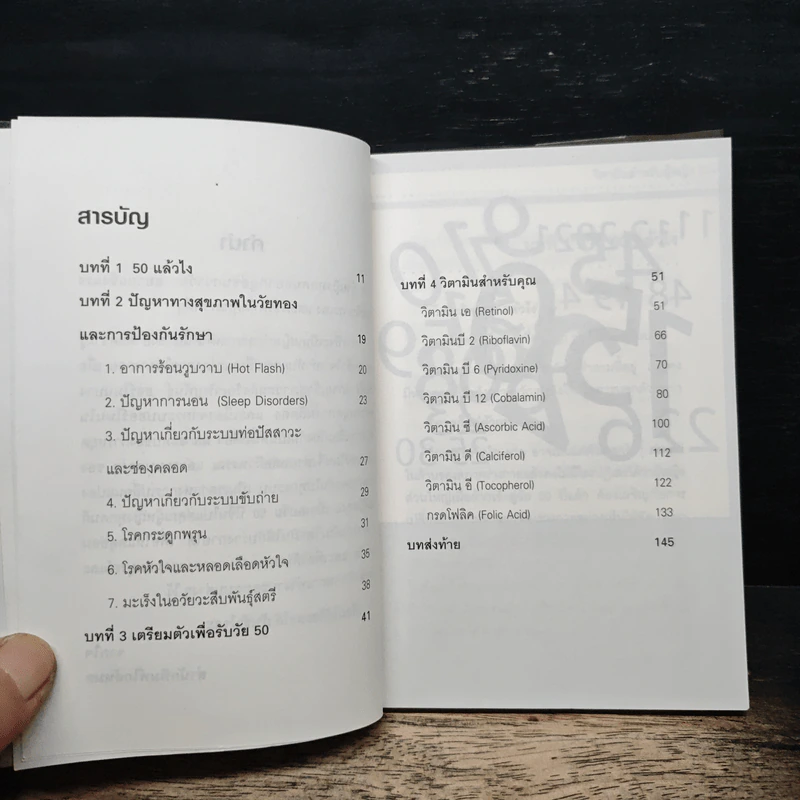 สารบัญ
บทที่ 1 50 แล้วไง 11
บทที่ 2 ปัญหาทางสุขภาพในวัยทอง
และการป้องกันรักษา 19
1. อาการร้อนวูบวาบ (Hot Flash) 20
2. ปัญหาการนอน (Sleep Disorders) 23
3. ปัญหาเกี่ยวกับระบบท่อปัสสาวะ
และช่องคลอด 27
4. ปัญหาเกี่ยวกับระบบขับถ่าย 29
5. โรคกระดูกพรุน 31
6. โรคหัวใจและหลอดเลือดหัวใจ 35
7. มะเร็งในอวัยวะสืบพันธุ์สตรี 38
บทที่ 3 เตรียมตัวเพื่อรับวัย 50 41
บทที่ 4 วิตามินสำหรับคุณ 51
วิตามิน เอ (Retinol) 51
วิตามินบี 2 (Riboflavin) 66
วิตามิน บี 6 (Pyridoxine) 70
วิตามิน บี 12 (Cobalamin) 80
วิตามิน ซี (Ascorbic Acid) 100
วิตามิน ดี (Calciferol) 112
วิตามิน อี (Tocopherol) 122
กรดโฟลิค (Folic Acid) 133
บทส่งท้าย 145